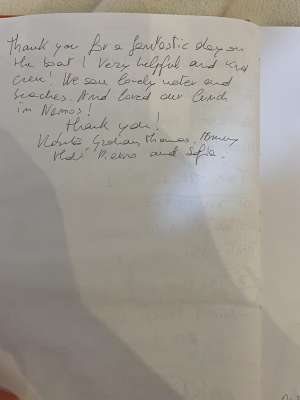 Thank you for a fantastic day on
the boat! Very helpful and kind
crew! We saw lovely water and
beaches. And loved our lunch
in Nemos!
Thank you!
Graham, Thomas,
and Sofia.